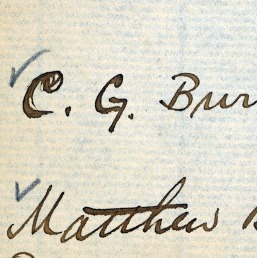 C. G. Bur
Matthew